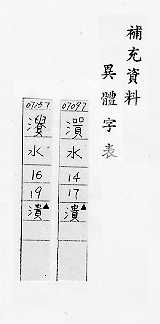 補充資料
異體字表
07097
水
14
17
潰▲
07157
水
16
19
潰▲